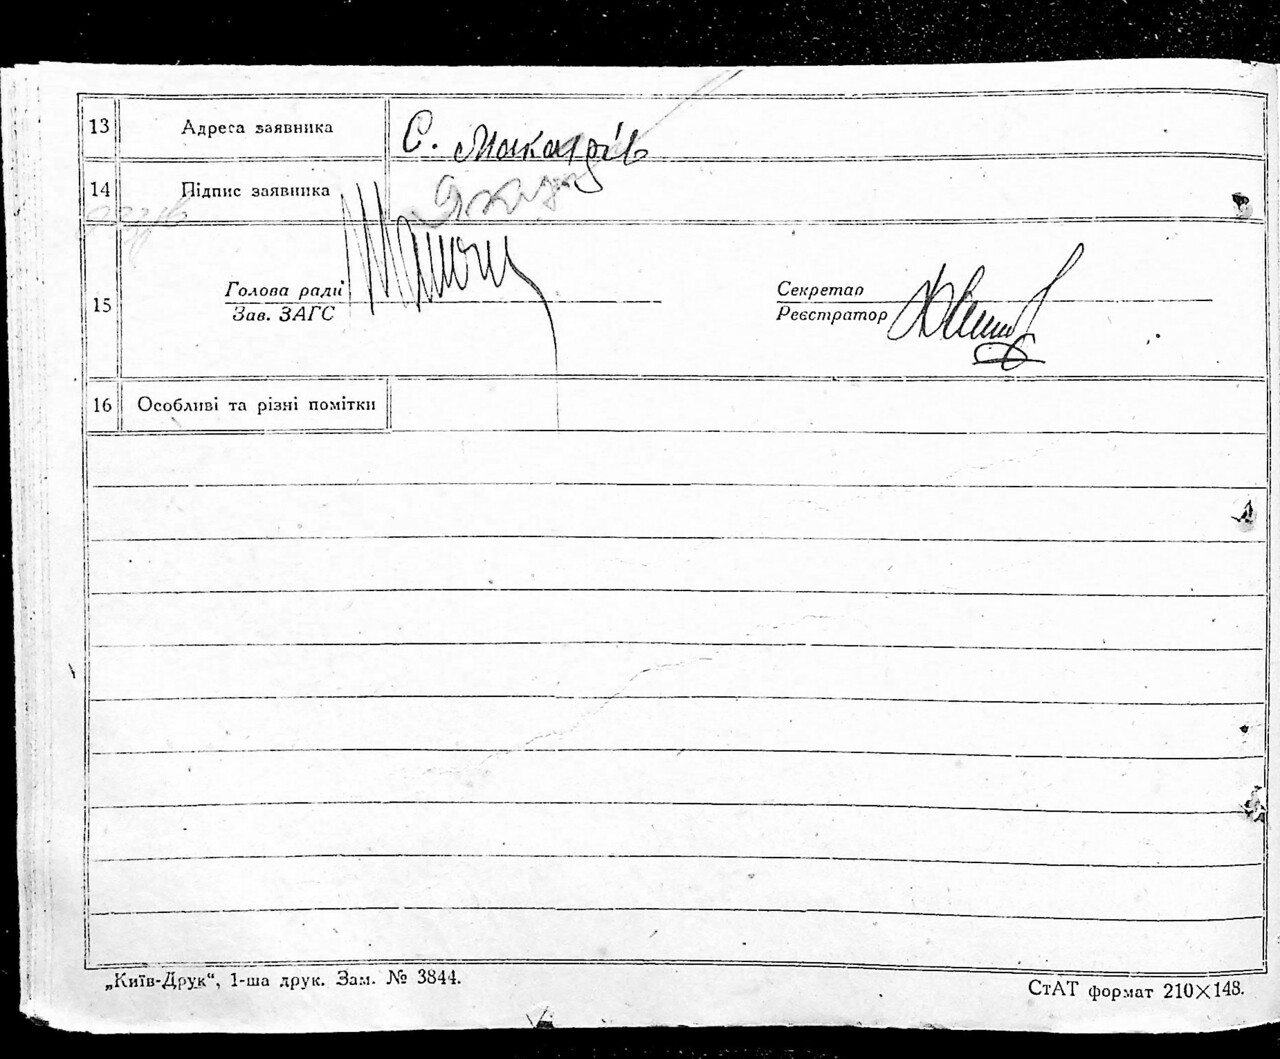 13 Адреса заявника С. Макарів
14 Підпис заявника
15
Голова ради
Зав. ЗАГС
Секретар
Реєстратор
16 Особливі та різні помітки
„Київ-Друк“, 1-ша друк. Зам. № 3844.
СтАТ формат 210×148.